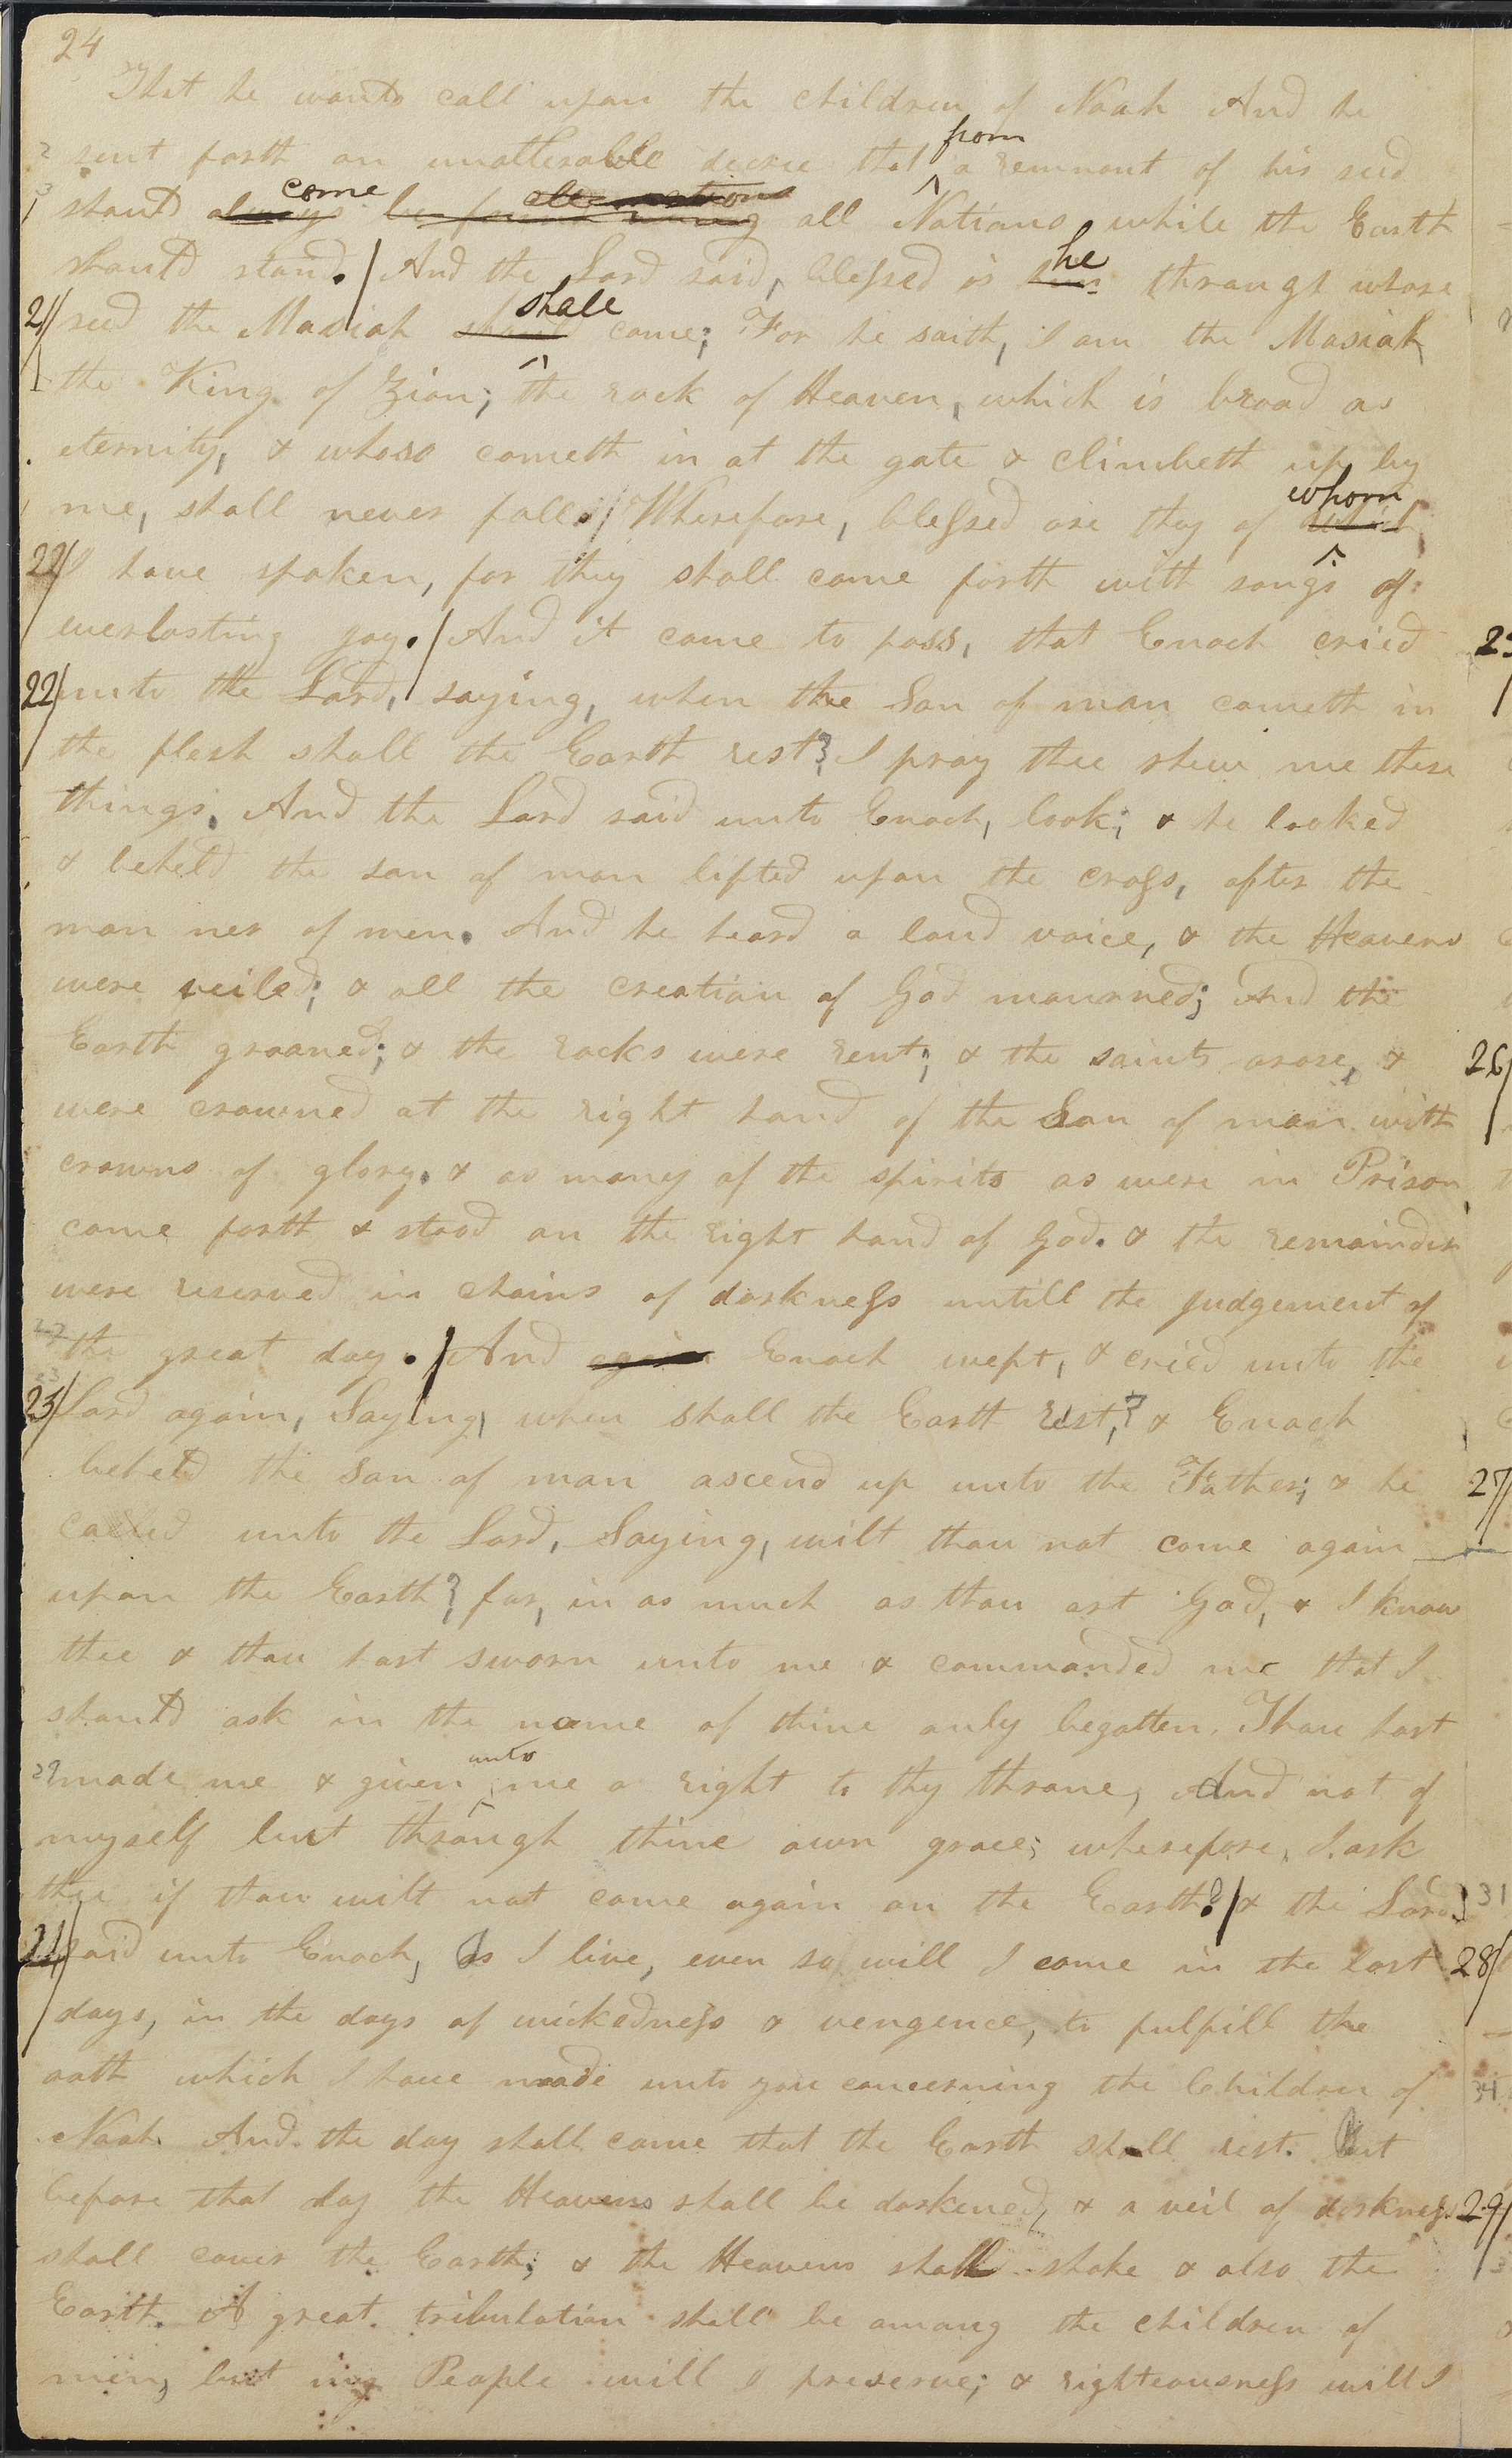 24
That he would call upon the children of Noah And he
sent forth an unalterable decree that from a remnant of his seed
should always come be found among all nations all Nations, while the Earth
should stand. / And the Lord said, blessed is him he through whose
21/ seed the Masiah should shall come; For he saith, I am the Masiah,
the King of Zion; the rock of Heaven, which is broad as
eternity, & whoso cometh in at the gate & climbeth up by
me, shall never fall. / Wherefore, blessed are they of which whom
22/ I have spoken, for they shall come forth with songs of
everlasting joy. / And it came to pass, that Enoch cried 25
22/ unto the Lord, saying, when the Son of man cometh in
the flesh shall the Earth rest? I pray thee shew me these
things. And the Lord said unto Enoch, look; & he looked
& beheld the son of man lifted upon the cross, after the
man ner of men. And he heard a loud voice, & the Heavens
were veiled; & all the creation of God mourned; And the
Earth groaned; & the rocks were rent; & the saints arose, & 26/
were crowned at the right hand of the Son of man with
crowns of glory. & as many of the spirits as were in Prison,
came forth & stood on the right hand of God. & the remainder
were reserved in chains of darkness untill the judgement of
the great day. / And again Enoch wept, & cried unto the
23/ Lord again, Saying, when shall the Earth rest,? & Enoch
beheld the son of man ascend up unto the Father; & he 27/
called unto the Lord, Saying, wilt thou not come again
upon the Earth? for, in as much as thou art God, & I know
thee & thou hast sworn unto me & commanded me that I
should ask in the name of thine only begotten, Thou hast
29 made me & given unto me a right to thy throne, And not of
myself but through thine own grace; wherefore, I ask
thee if thou wilt not come again on the Earth? / & the Lord 31
24/ said unto Enoch, As I live, even so will I come in the last 28/
days, in the days of wickedness & vengence, to fulfill the
oath which I have made unto you concerning the Children of 34
Noah. And the day shall come that the Earth shall rest. But
before that day the Heavens shall be darkened, & a veil of darkness 29/
shall cover the Earth; & the Heavens shall shake & also the
Earth. A great tribulation shall be among the children of
men, but my People will I preserve; & righteousness will I